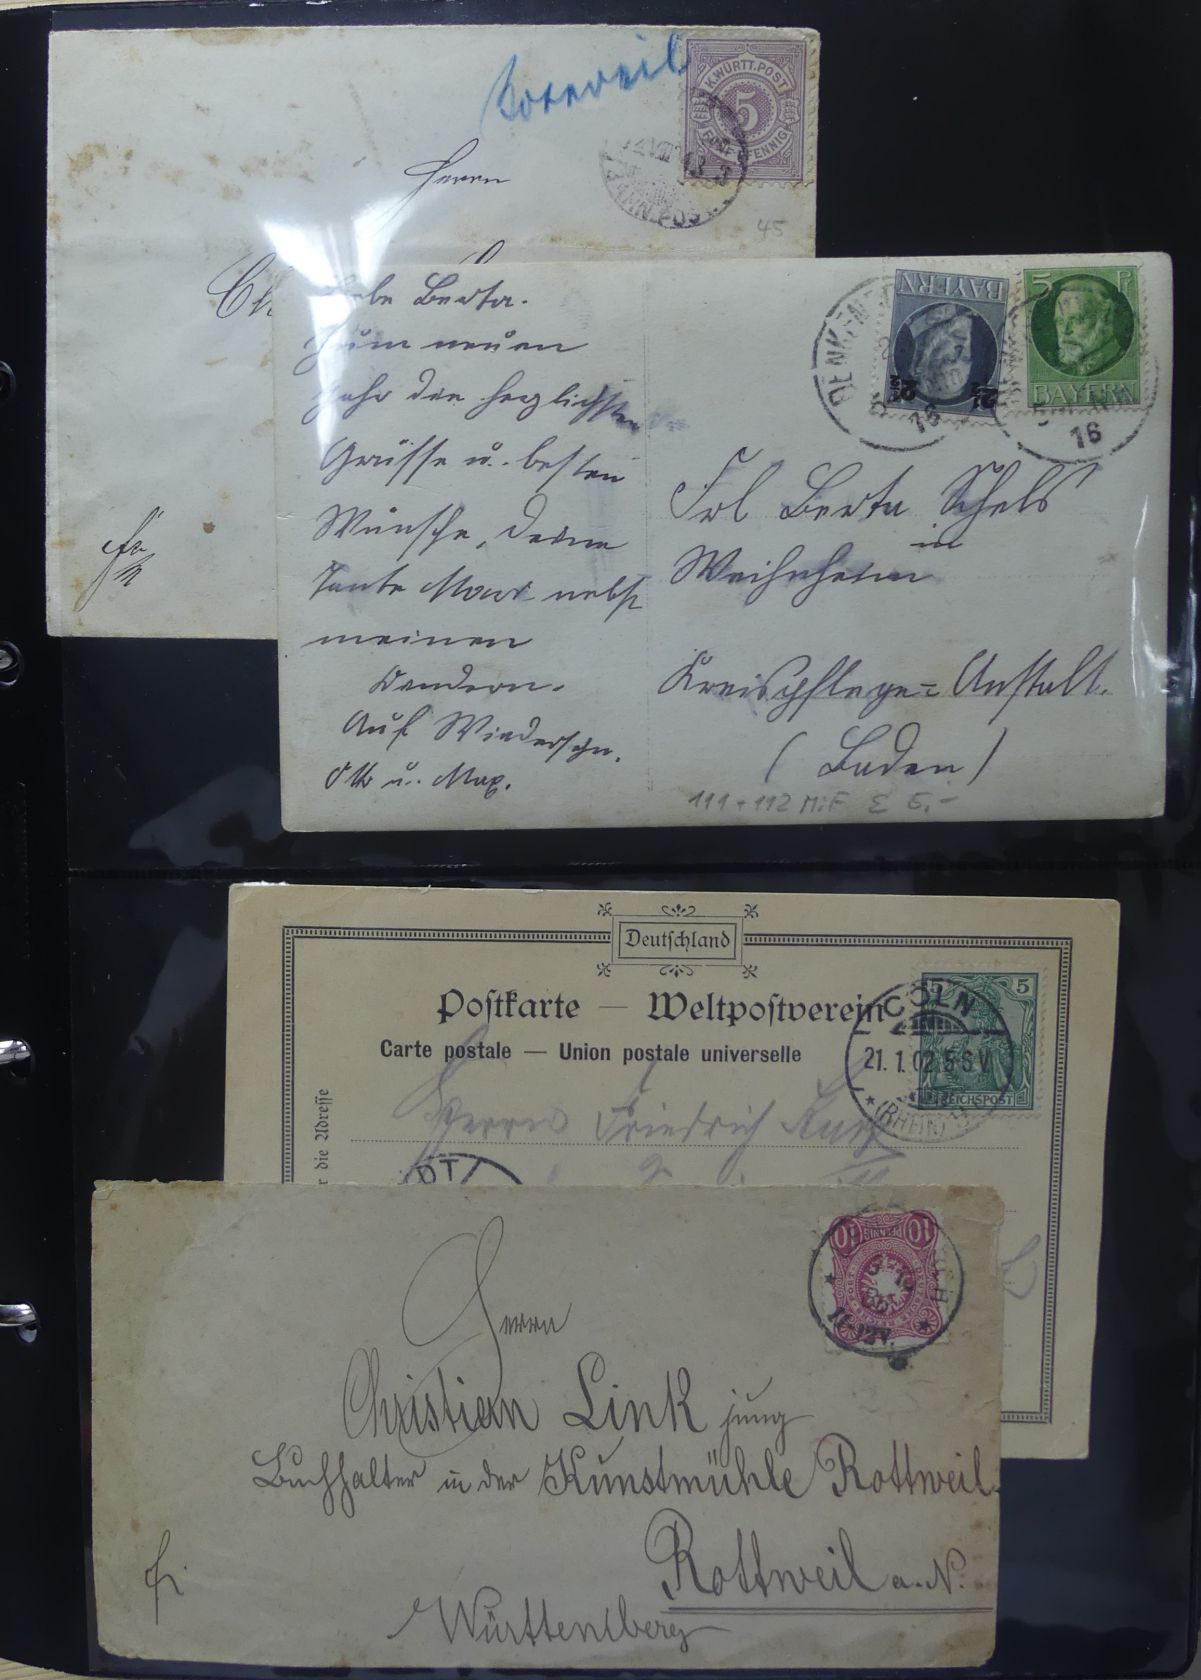 Rottweil
K. WÜRTT. POST
5
FÜNF PFENNIG
BAHNPOST
Herrn
45
Liebe Berta.
Zum neuen
Jahr die herzlichsten
Grüsse u. besten
Wünsche, deine
Tante Marie nebst
meinen
Kindern.
Auf Wiedersehn.
Otto u. Max.
BAYERN
2½ 2½
16
5 P
BAYERN
16
Frl Berta Schels
in
Weinheim
Kreispflege=Anstalt.
(Baden)
111+112 MiF Σ 6,-
Deutschland
Postkarte — Weltpostverein
Carte postale — Union postale universelle
5 5
REICHSPOST
CÖLN
21.1.02.5-6V.
(RHEIN)
die Adresse
Herrn Friedrich
10 10
10-12V.
Herrn
Christian Link jung
Buchhalter in der Kunstmühle Rottweil
Rottweil a. N.
Württemberg
fr.